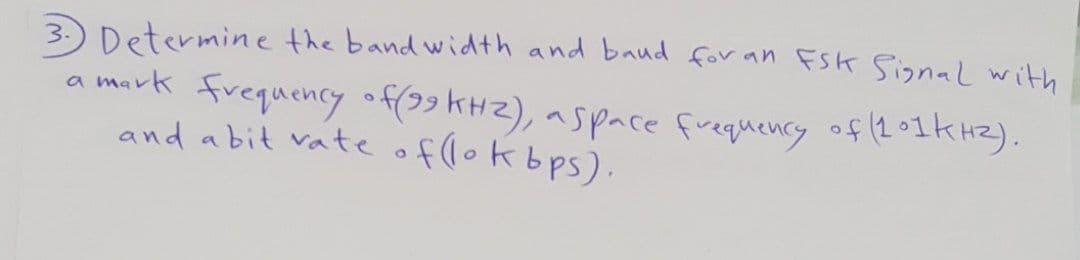 3.) Determine the bandwidth and baud for an FSK Signal with
a mark frequency of (99 KHZ), a space frequency of (101 KHZ).
and a bit rate of (10 kbps).